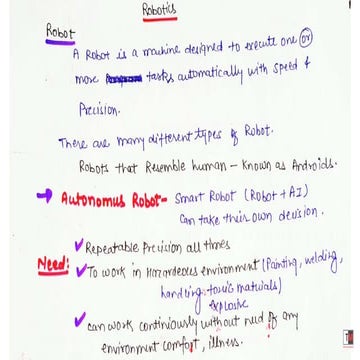 Robotics
Robot
A Robot is a machine designed to execute one or
more tasks automatically with speed &
Precision.
There are many different types of Robot.
Robots that Resemble human – Known as Androids.
→ Autonomus Robot– Smart Robot (Robot + AI)
Can take their own decision.
Need: ✓ Repeatable Precision all times
✓ To work in Hazardeous environment (Painting, welding,
handling materials)
explosive
✓ can work continiously without need of any
environment comfort, illness.